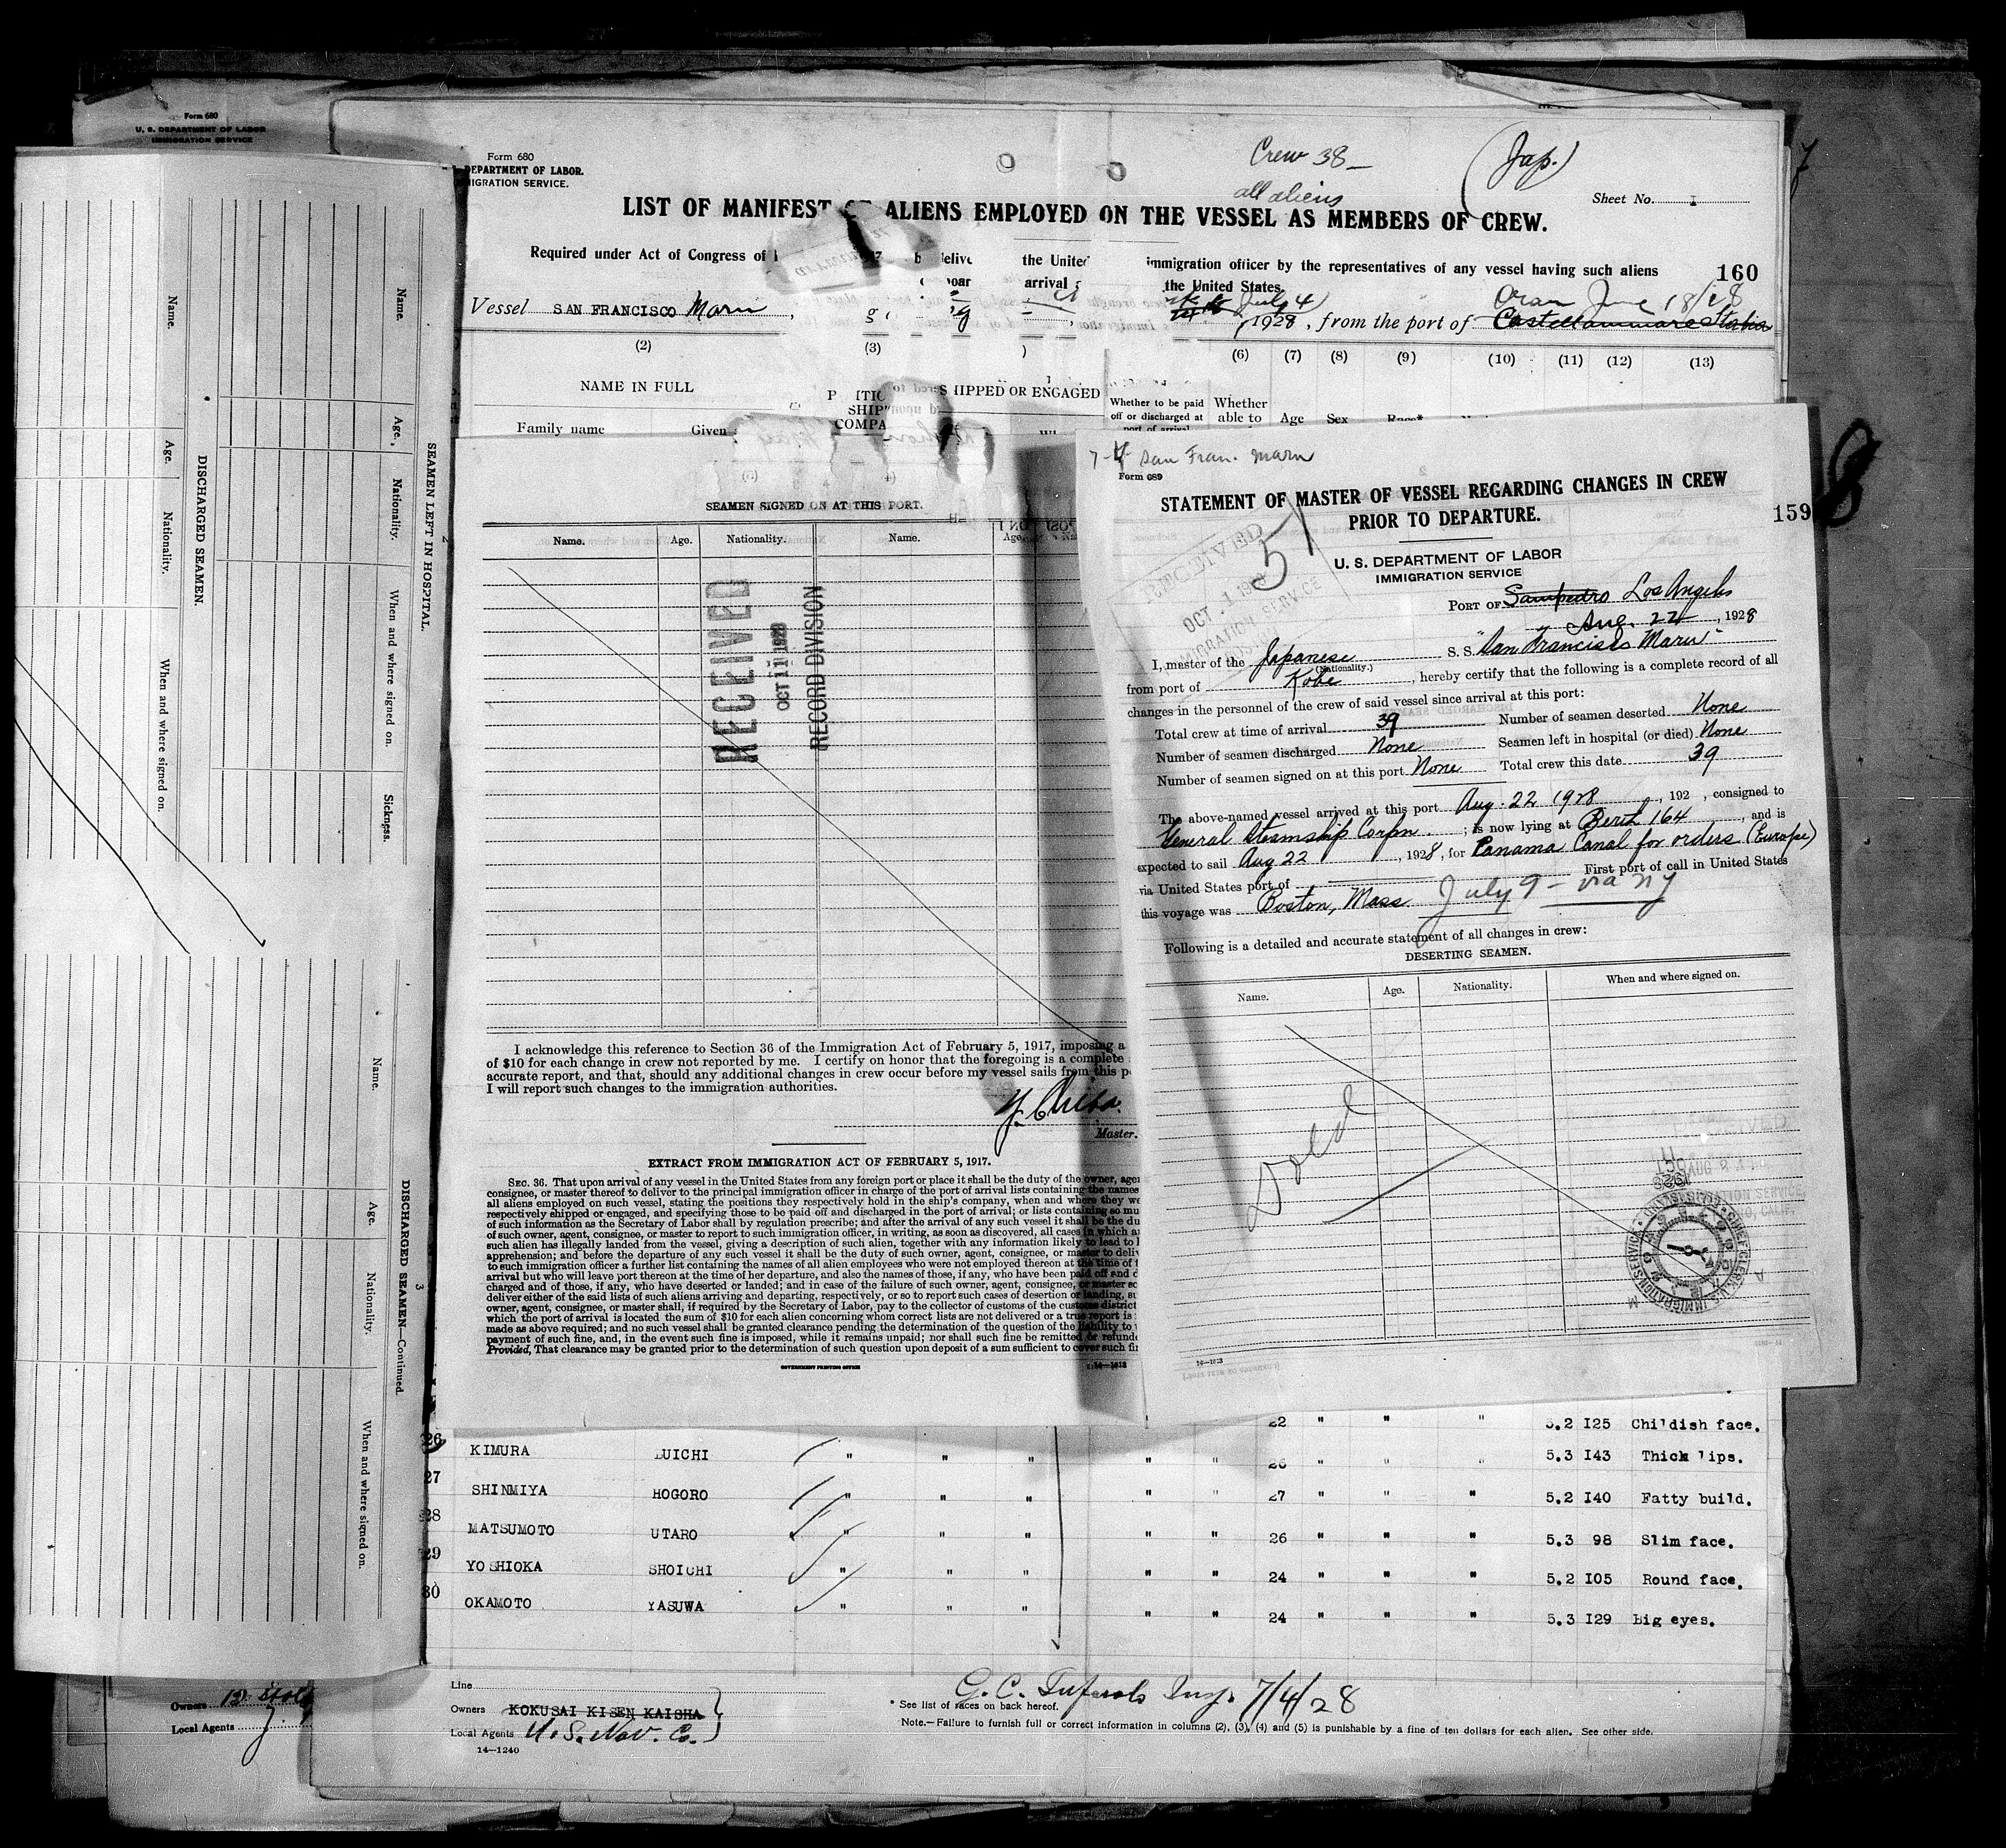 Form 680
U. S. DEPARTMENT OF LABOR
IMMIGRATION SERVICE
Form 680
DEPARTMENT OF LABOR.
IGRATION SERVICE.
Crew 38 –
all aliens
(Jap.)
Sheet No. 1
LIST OF MANIFEST OF ALIENS EMPLOYED ON THE VESSEL AS MEMBERS OF CREW.
Required under Act of Congress of
the United
immigration officer by the representatives of any vessel having such aliens
160
arrival
the United States.
Vessel SAN FRANCISCO Maru
July 4
Oran June 18/28
, 1928, from the port of Castellammare Stabia
(2) (3) (6) (7) (8) (9) (10) (11) (12) (13)
NAME IN FULL
SHIPPED OR ENGAGED
SHIP'
COMPA
Whether to be paid
off or discharged at
port of arrival
Whether
able to
Age Sex Race*
Family name Given
SEAMEN LEFT IN HOSPITAL.
Name. Age. Nationality. When and where signed on. Sickness.
DISCHARGED SEAMEN.
Name. Age. Nationality. When and where signed on.
3
DISCHARGED SEAMEN—Continued.
Name. Age. Nationality. When and where signed on.
SEAMEN SIGNED ON AT THIS PORT.
Name. Age. Nationality. Name. Age.
RECEIVED
OCT 11 1928
RECORD DIVISION
I acknowledge this reference to Section 36 of the Immigration Act of February 5, 1917, imposing a
of $10 for each change in crew not reported by me. I certify on honor that the foregoing is a complete
accurate report, and that, should any additional changes in crew occur before my vessel sails from this p
I will report such changes to the immigration authorities.
Y. Chiba.
Master.
EXTRACT FROM IMMIGRATION ACT OF FEBRUARY 5, 1917.
SEC. 36. That upon arrival of any vessel in the United States from any foreign port or place it shall be the duty of the owner, age
consignee, or master thereof to deliver to the principal immigration officer in charge of the port of arrival lists containing the names
all aliens employed on such vessel, stating the positions they respectively hold in the ship's company, when and where they we
respectively shipped or engaged, and specifying those to be paid off and discharged in the port of arrival; or lists containing so mu
of such information as the Secretary of Labor shall by regulation prescribe; and after the arrival of any such vessel it shall be the du
of such owner, agent, consignee, or master to report to such immigration officer, in writing, as soon as discovered, all cases in which a
such alien has illegally landed from the vessel, giving a description of such alien, together with any information likely to lead to
apprehension; and before the departure of any such vessel it shall be the duty of such owner, agent, consignee, or master to deliv
to such immigration officer a further list containing the names of all alien employees who were not employed thereon at the time of t
arrival but who will leave port thereon at the time of her departure, and also the names of those, if any, who have been paid off and d
charged and of those, if any, who have deserted or landed; and in case of the failure of such owner, agent, consignee, or master so
deliver either of the said lists of such aliens arriving and departing, respectively, or so to report such cases of desertion or landing, su
owner, agent, consignee, or master shall, if required by the Secretary of Labor, pay to the collector of customs of the customs district
which the port of arrival is located the sum of $10 for each alien concerning whom correct lists are not delivered or a true report is
made as above required; and no such vessel shall be granted clearance pending the determination of the question of the liability to
payment of such fine, and, in the event such fine is imposed, while it remains unpaid; nor shall such fine be remitted or refunde
Provided, That clearance may be granted prior to the determination of such question upon deposit of a sum sufficient to cover such fi
GOVERNMENT PRINTING OFFICE
14—1613
7-4 San Fran. Maru
Form 689
STATEMENT OF MASTER OF VESSEL REGARDING CHANGES IN CREW
PRIOR TO DEPARTURE.
159
51
OCT 1 1928
U. S. DEPARTMENT OF LABOR
IMMIGRATION SERVICE
PORT OF San pedro Los Angeles
Aug. 22, 1928
I, master of the Japanese S. S. "San Francisco Maru"
(Nationality.)
from port of Kobe, hereby certify that the following is a complete record of all
changes in the personnel of the crew of said vessel since arrival at this port:
Total crew at time of arrival 39 Number of seamen deserted None
Number of seamen discharged None Seamen left in hospital (or died) None
Number of seamen signed on at this port None Total crew this date 39
The above-named vessel arrived at this port Aug. 22 1928, 192 , consigned to
General Steamship Corpn. ; is now lying at Berth 164, and is
expected to sail Aug 22, 1928, for Panama Canal for orders (Europe)
via United States port of First port of call in United States
this voyage was Boston, Mass. July 9 – via NY
Following is a detailed and accurate statement of all changes in crew:
DESERTING SEAMEN.
Name. Age. Nationality. When and where signed on.
14—1613
22 " " " 5.2 125 Childish face.
26 KIMURA UICHI " " " " " 26 " " " 5.3 143 Thick lips.
27 SHINMIYA HOGORO " " " " " 27 " " " 5.2 140 Fatty build.
28 MATSUMOTO UTARO " " " " " 26 " " " 5.3 98 Slim face.
29 YOSHIOKA SHOICHI " " " " " 24 " " " 5.2 105 Round face.
30 OKAMOTO YASUWA " " " " " 24 " " " 5.3 129 Big eyes.
Line
Owners KOKUSAI KISEN KAISHA
Local Agents U. S. Nav. Co.
14—1240
7/4/28
* See list of races on back hereof.
Note.—Failure to furnish full or correct information in columns (2), (3), (4) and (5) is punishable by a fine of ten dollars for each alien. See other side.
Owners
Local Agents